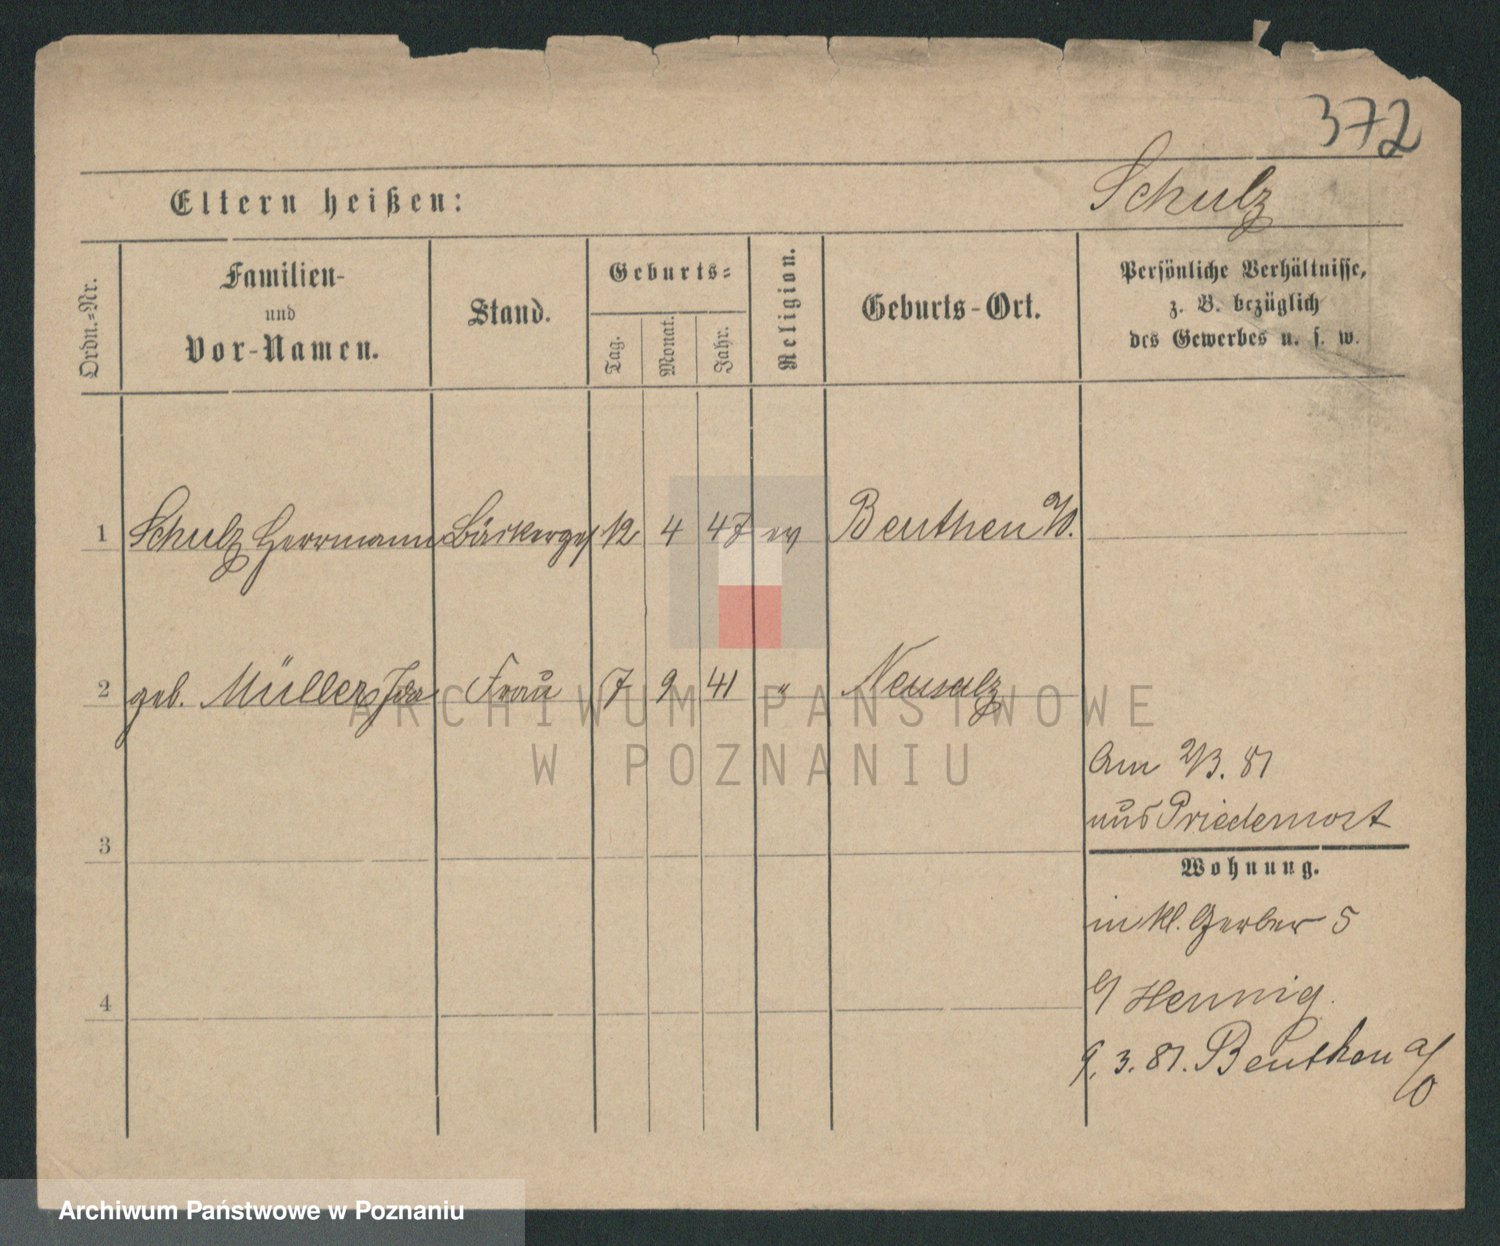 372
Schulz
Eltern heißen:
Ordn.-Nr.
Familien-
und
Vor-Namen.
Stand.
Geburts-
Tag.
Monat.
Jahr.
Religion.
Geburts-Ort.
Persönliche Verhältnisse,
z. B. bezüglich
des Gewerbes u. s. w.
1 Schulz Herrmann Bäckerges 12 4 47 ev Beuthen a/O.
2 geb. Müller Ida Frau 7 9 41 " Neusalz
ARCHIWUM PAŃSTWOWE
W POZNANIU
Am 2/3. 81
aus Priedemost
3
Wohnung.
in kl. Gerber 5
b/ Hennig.
4
9. 3. 81. Beuthen a/O
Archiwum Państwowe w Poznaniu